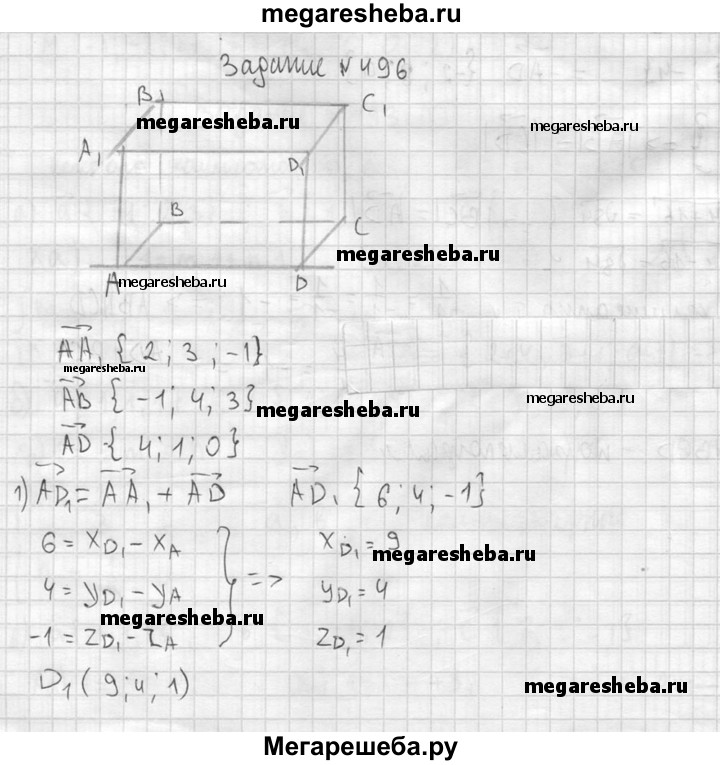 megaresheba.ru
Задание №496
B₁
C₁
megaresheba.ru
megaresheba.ru
A₁
D₁
B
C
megaresheba.ru
A
megaresheba.ru
D
AA₁ {2; 3; -1}
megaresheba.ru
AB {-1; 4; 3}
megaresheba.ru
megaresheba.ru
AD {4; 1; 0}
1) AD₁ = AA₁ + AD AD₁ {6; 4; -1}
6 = x_D₁ - x_A x_D₁ = 9
megaresheba.ru
4 = y_D₁ - y_A => y_D₁ = 4
megaresheba.ru
-1 = z_D₁ - z_A z_D₁ = 1
D₁ (9; 4; 1)
megaresheba.ru
Мегарешеба.ру